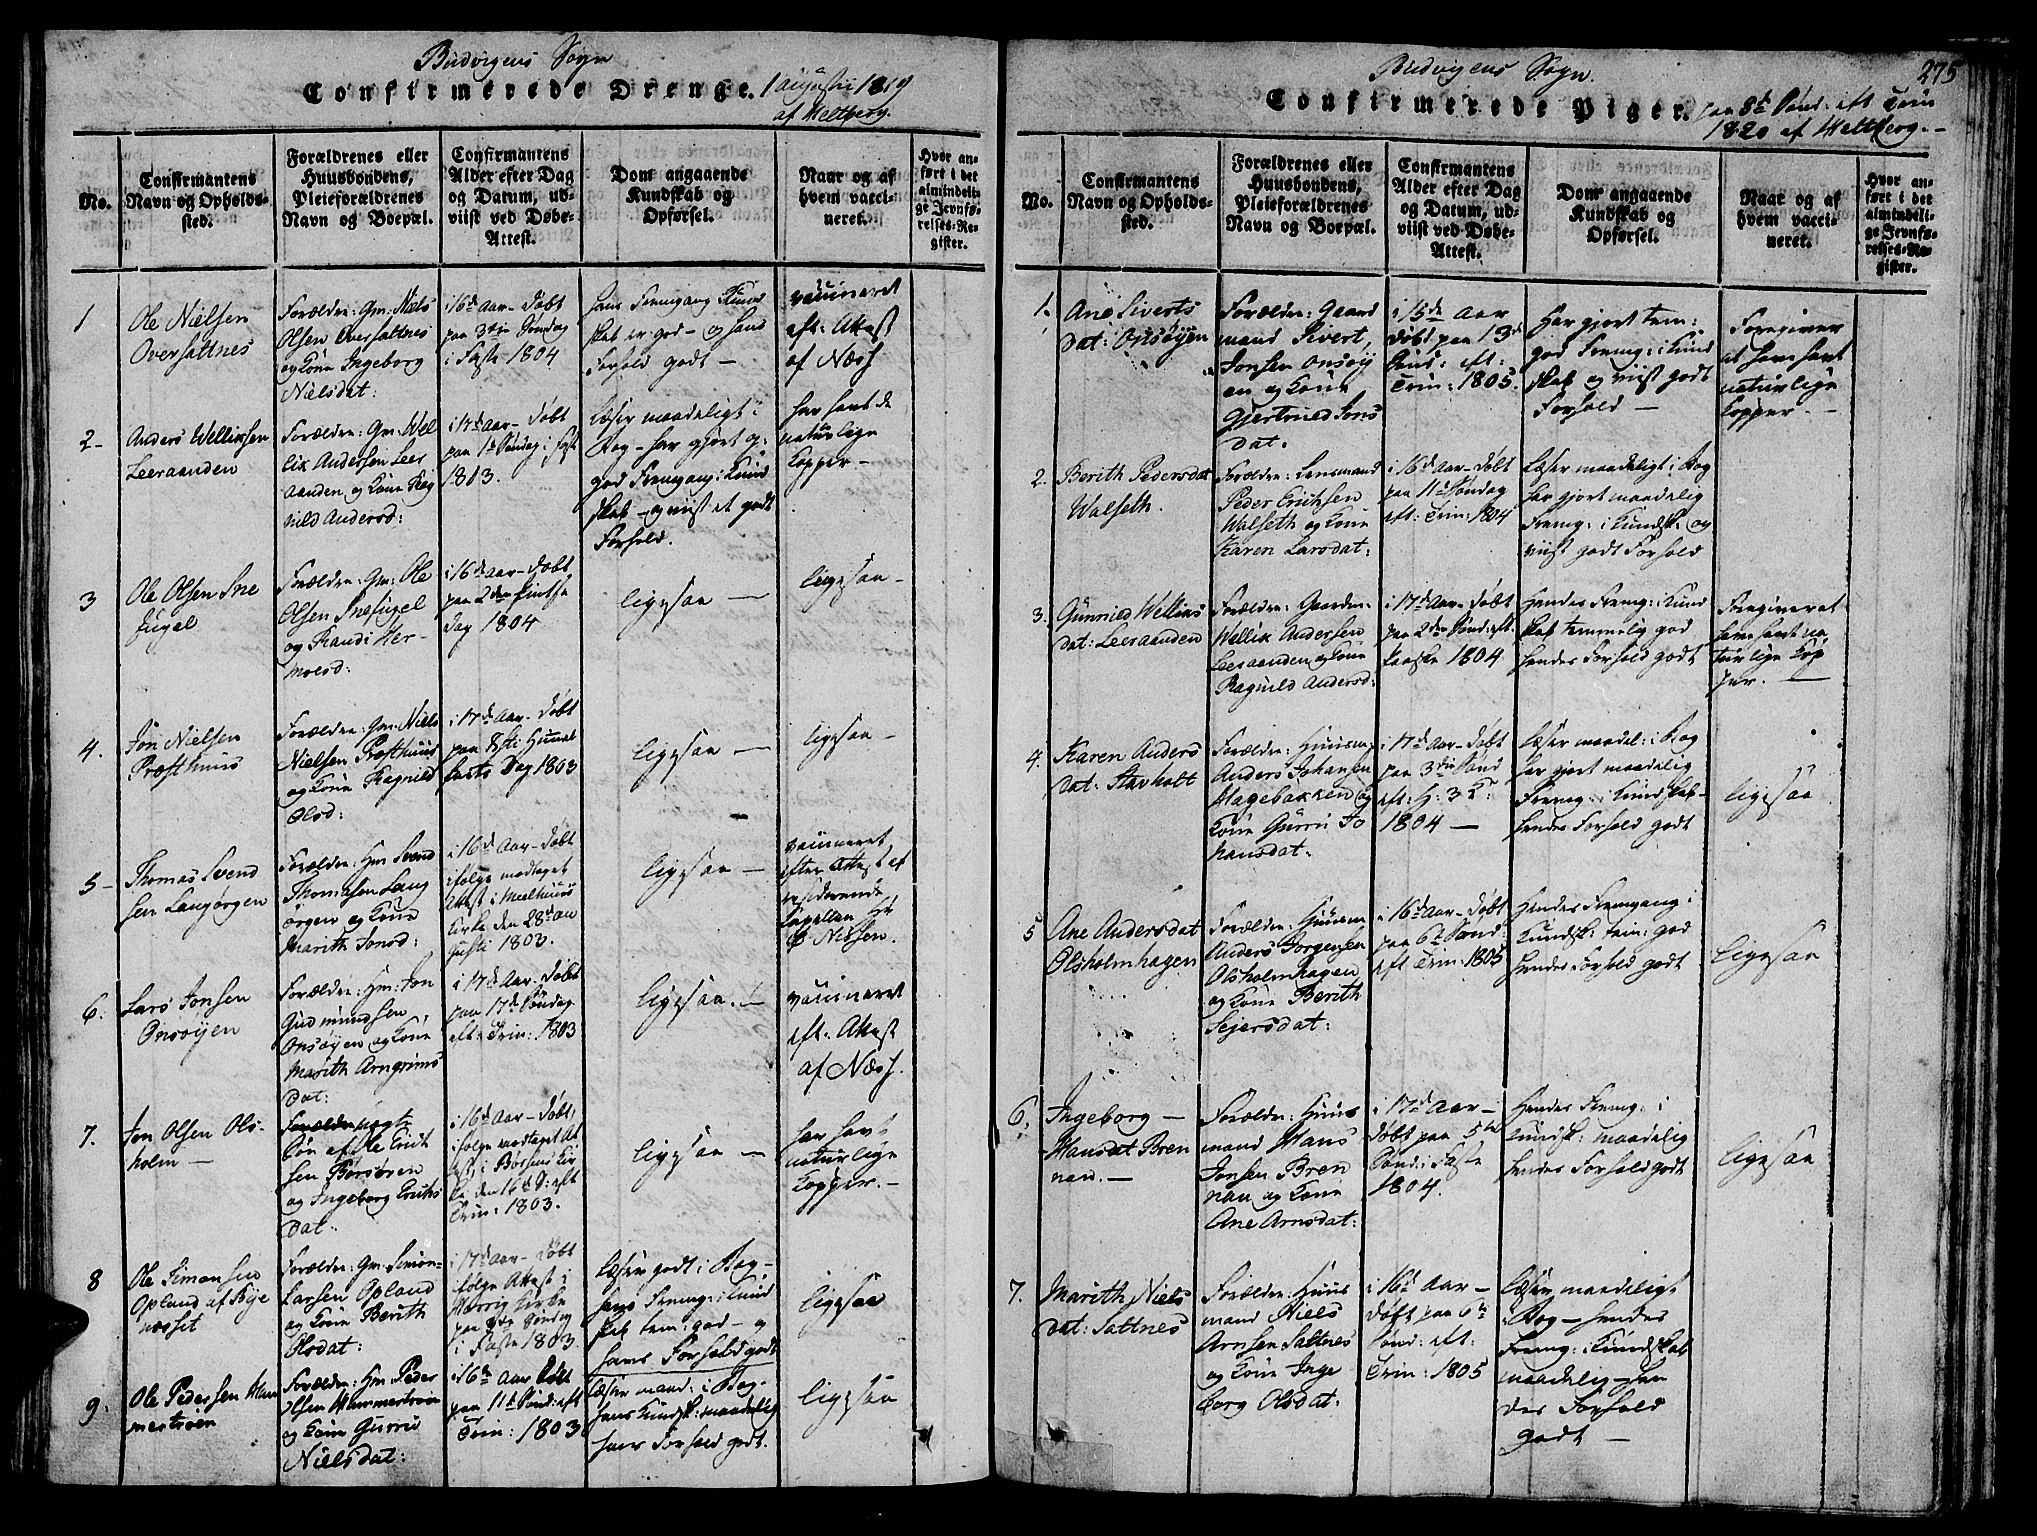 Budvigens Sogn
Confirmerede Drenge. 1 augustii 1819
af Weltberg.
No.
Confirmantens
Navn og Opholds-
sted.
Forældrenes eller
Huusbondens,
Pleieforældrenes
Navn og Boepæl.
Confirmantens
Alder efter Dag
og Datum, ud-
viist ved Døbe-
Attest.
Dom angaaende
Kundskab og
Opførsel.
Naar og af
hvem vacci-
neret.
Hvor an-
ført i det
almindeli-
ge Jevnfø-
relses-Re-
gister.
1
Ole Nielsen
Oversattnes
Forældre: Gm: Niels
Olsen Oversattnes
og Kone Ingeborg
Nielsdat:
i 16de Aar - døbt
paa 3die Søndag
i Faste 1804
hans Fremgang Kund
skab er god - og hans
Forhold godt -
vaccineret
eft: Attest
af Næss
2 -
Anders Wellixsen
Leeraanden
Forældre: Gm: Wel
lix Andersen Leer
aanden og Kone Rag
nild Andersd:
i 17de Aar - døbt
paa 1ste Søndag i Faste
1803.
Læser maadeligt i
Bog - har gjort
god Fremgang i Kund
skab - og viist et godt
Forhold.
har havt de
naturlige
Kopper -
3
Ole Olsen Sne
fugel
Forældre: Gm: Ole
Olsen Snefugel
og Randi Her-
moesd:
i 16de Aar - døbt
paa 2den Pintse
dag 1804
ligesaa -
ligesaa -
4.
Jon Nielsen
Præsthuus
Forældre: Gm: Niels
Nielsen Præsthuus
og Kone Ragnild
Olsd:
i 17de Aar - døbt
paa Xsti Himmel
farts Dag 1803
ligesaa -
ligesaa -
5 -
Thomas Svend
sen Langørgen
Forældre: Hm: Svend
Thomasen Lang
ørgen og Kone
Marith Jonsd:
i 16de Aar - døbt
ifølge modtaget
Attest i Meelhuus
Kirke den 28de au
gusti 1803.
ligesaa -
vaccineret
efter Attest af
residerende
Capellan Hr
Nissen.
6.
Lars Jonsen
Onsøyen
Forældre: Hm: Jon
Gudmundsen
Onsøyen og Kone
Marith Arngrims
dat:
i 17de Aar - døbt
paa 17de Søndag
eft: Trin: 1803
ligesaa. -
vaccineret
eft: Attest
af Næss.
7.
Jon Olsen Ols-
holm -
uægte
Søn af Ole Erich
sen Børsøren
og Ingeborg Erichs
dat.
i 16de Aar - døbt,
ifølge modtaget At
test, i Børsens Kir
ke den 16de S: eft
Trin: 1803.
ligesaa -
har havt
naturlige
Kopper. -
8
Ole Simonsen
Opland af Bye
næsset
Forældre: Gm: Simon
Larsen Opland
og Kone Berith
Olsdat:
i 17de Aar - døbt
ifølge Attest i
Kirke
paa Søndag
i Faste 1803.
Læser godt i Bog -
hans Fremg: i Kund
skab tem: god - og
hans Forhold godt
ligesaa
9.
Ole Pedersen Ham
merstrøen
Forældre: Hm: Peder
Olsen Hammerstrøen
og Kone Gurru
Nielsdat:
i 16de Aar døbt
paa 11te Sønd: eft
Trin: 1803
Læser maad: i Bog -
hans Kundsk: maadelig
hans Forhold godt.
ligesaa
275
Budvigens Sogn.
Confirmerede Piger. paa 8de Sønd: eft Trin
1820 af Weltberg. -
No.
Confirmantens
Navn og Opholds-
sted.
Forældrenes eller
Huusbondens,
Pleieforældrenes
Navn og Boepæl.
Confirmantens
Alder efter Dag
og Datum, ud-
viist ved Døbe-
Attest.
Dom angaaende
Kundskab og
Opførsel.
Naar og af
hvem vacci-
neret.
Hvor an-
ført i det
almindeli-
ge Jevnfø-
relses-Re-
gister.
1.
Ane Siverts
dat: Onsøyen
Forældre: Gaard
mand Sivert
Jonsen Onsøy
en og Kone
Gjertrued Jons
dat.
i 15de Aar
døbt paa 13de
Sønd: eft:
Trin: 1805.
Har gjort tem:
god Fremg: i Kund
skab og viist godt
Forhold -
Foregiver
at have havt
naturlige
Kopper. -
2.
Berith Pedersdat
Walseth.
Forældre: Lensmand
Peder Erichsen
Walseth og Kone
Karen Larsdat:
i 16de Aar - døbt
paa 11te Søndag
eft: Trin: 1804
Læser maadeligt i Bog
har gjort maadelig
Fremg: i Kundsk: og
viist godt Forhold
3.
Gunnild Wellixs
dat: Leeraanden
Forældre: Gaardm:
Wellix Andersen
Leeraanden og Kone
Ragnild Andersd:
i 17de Aar - døbt
paa 2den Sønd: eft.
Paaske 1804
Hendes Fremg: i Kund
skab temmelig god
hendes Forhold godt
Foregiver at
have havt na
turlige Kop
per. -
4.
Karen Anders
dat: Stavholt
Forældre: Huusm:
Anders Johansen
Hagebakken og
Kone Gurru Jo
hansdat:
i 17de Aar - døbt
paa 3die Sønd
eft: H: 3 K:
1804 -
Læser maadel: i Bog
har gjort maadelig
Fremg: i Kundskab -
hendes Forhold godt
ligesaa
5
Ane Andersdat
Olsholmhagen
Forældre: Huusm
Anders Jorgensen
Olsholmhagen
og Kone Berith
Sejersdat:
i 16de Aar - døbt
paa 6te Sønd
eft Trin: 1805
Hendes Fremgang i
Kundsk: tem: god
hendes Forhold godt
ligesaa
6.
Ingeborg -
Hansdat Bren
nan. -
Forældre: Huus
mand Hans
Jonsen Bren
nan og Kone
Ane Arnsdat:
i 17de Aar -
døbt paa 5te
Sønd: i Faste
1804.
Hendes Fremg: i
Kundsk: maadelig
hendes Forhold godt
ligesaa
7.
Marith Niels
dat: Saltnes
Forældre: Huus
mand Niels
Arnsen Saltnes
og Kone Inge
borg Olsdat:
i 16de Aar -
døbt paa 6te
Sønd: eft:
Trin: 1805
Læser maadeligt i
Bog - hendes
Fremg: i Kundskab
maadelig - hen
des Forhold
godt -